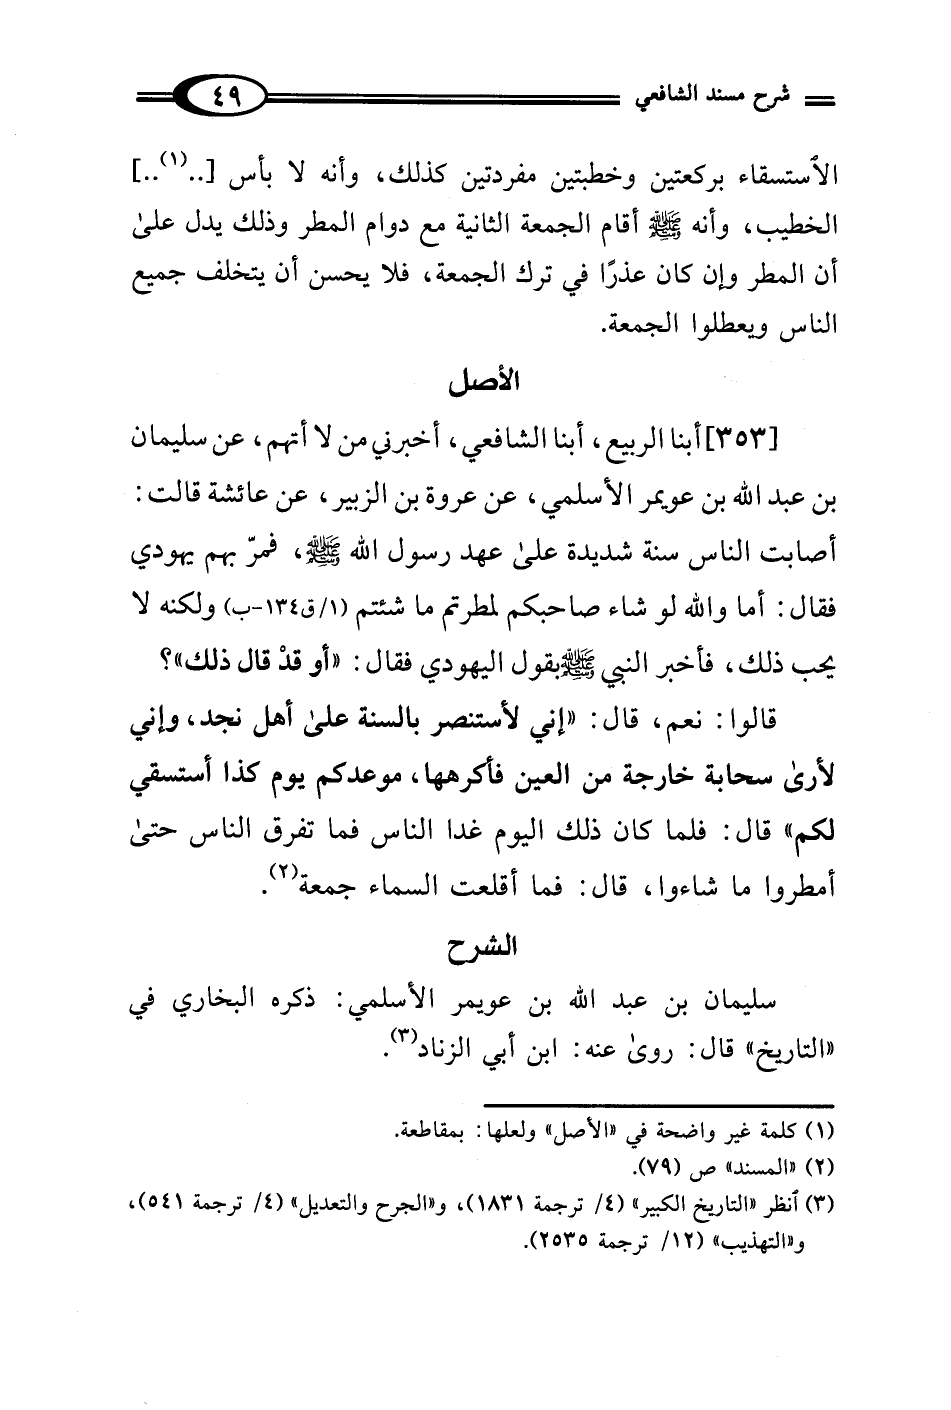 شرح مسند الشافعي
٤٩
الاستسقاء بركعتين وخطبتين مفردتين كذلك، وأنه لا بأس [..(١)..]
الخطيب، وأنه ﷺ أقام الجمعة الثانية مع دوام المطر وذلك يدل علىٰ
أن المطر وإن كان عذرًا في ترك الجمعة، فلا يحسن أن يتخلف جميع
الناس ويعطلوا الجمعة.
الأصل
[٣٥٣] أبنا الربيع، أبنا الشافعي، أخبرني من لا أتهم، عن سليمان
بن عبد الله بن عويمر الأسلمي، عن عروة بن الزبير، عن عائشة قالت:
أصابت الناس سنة شديدة علىٰ عهد رسول الله ﷺ، فمرّ بهم يهودي
فقال: أما والله لو شاء صاحبكم لمطرتم ما شئتم (١/ق١٣٤-ب) ولكنه لا
يحب ذلك، فأخبر النبي ﷺ بقول اليهودي فقال: «أو قدْ قال ذلك»؟
قالوا: نعم، قال: «إني لأستنصر بالسنة علىٰ أهل نجد، وإني
لأرىٰ سحابة خارجة من العين فأكرهها، موعدكم يوم كذا أستسقي
لكم» قال: فلما كان ذلك اليوم غدا الناس فما تفرق الناس حتىٰ
أمطروا ما شاءوا، قال: فما أقلعت السماء جمعة(٢).
الشرح
سليمان بن عبد الله بن عويمر الأسلمي: ذكره البخاري في
«التاريخ» قال: روىٰ عنه: ابن أبي الزناد(٣).
(١) كلمة غير واضحة في «الأصل» ولعلها: بمقاطعة.
(٢) «المسند» ص (٧٩).
(٣) ٱنظر «التاريخ الكبير» (٤/ ترجمة ١٨٣١)، و«الجرح والتعديل» (٤/ ترجمة ٥٤١)،
و«التهذيب» (١٢/ ترجمة ٢٥٣٥).